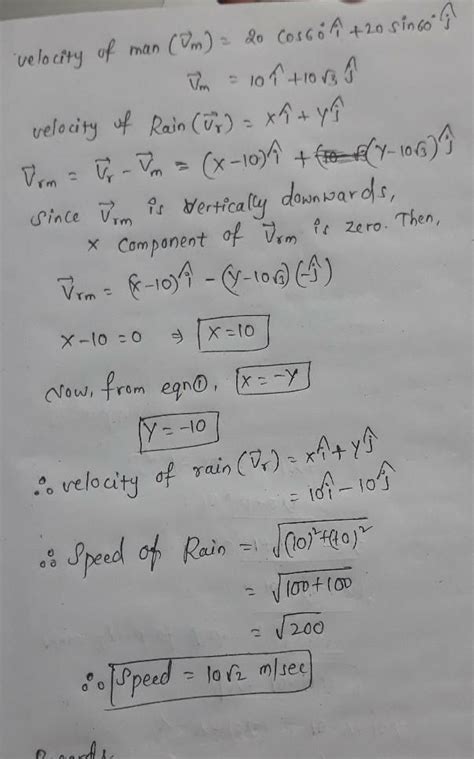 velocity of man (V⃗m) = 20 cos60° î + 20 sin60° ĵ
V⃗m = 10 î + 10√3 ĵ
velocity of Rain (V⃗r) = xî + yĵ
V⃗rm = V⃗r - V⃗m = (x-10)î + (y-10√3)ĵ
Since V⃗rm is vertically downwards,
x component of V⃗rm is zero. Then,
V⃗rm = (x-10)î - (y-10√3)(-ĵ)
x-10 = 0 ⇒ x=10
Now, from eqn①, x = -y
y = -10
∴ velocity of rain (V⃗r) = xî + yĵ
= 10î - 10ĵ
∴ Speed of Rain = √(10)²+(-10)²
= √100+100
= √200
∴ Speed = 10√2 m/sec